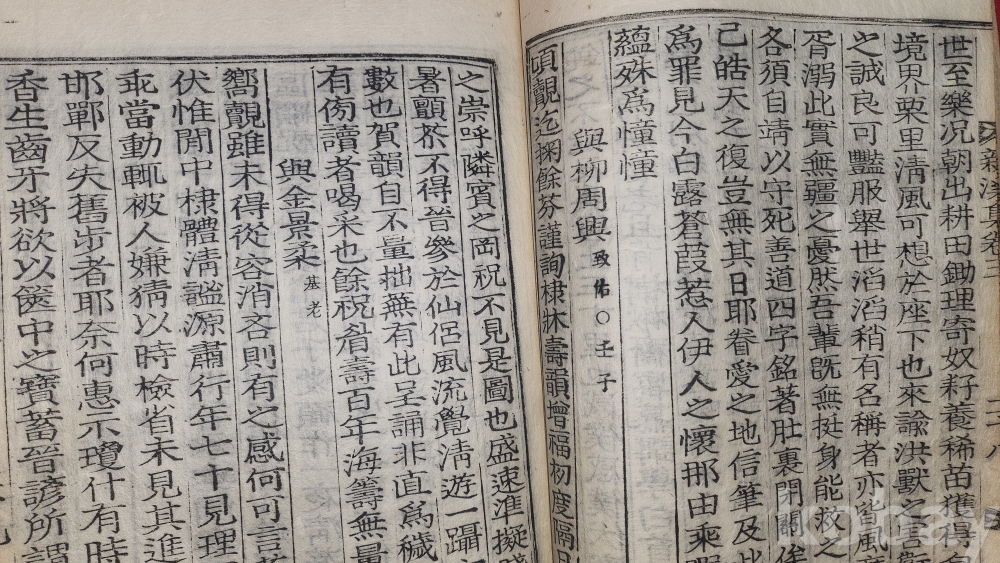 世至樂况朝出耕田鋤理寄奴耔養稀苗獲得
境界栗里淸風可想於座下也來諭洪獸之
之誠良可豔服舉世滔滔稍有名稱者亦皆風
胥溺此實無疆之憂然吾輩旣無挺身能救之
各須自靖以守死善道四字銘著肚裏閉
己皓天之復豈無其日耶眷愛之地信筆及此
爲罪見今白露蒼葭惹人伊人之懷挪由乘
蘊殊爲憧憧
與柳周興 致佑○壬子
頃覿迄掬餘芬謹詢棣牀壽韻增福初度隔
之崇呼隣賓之岡祝不見是圖也盛速準擬
暑顫茶不得晉參於仙侶風流覺淸遊一躡
數也賀韻自不量拙蕪有此呈誦非直爲穢
有傍讀者喝采也餘祝眉壽百年海籌無量
與金景柔 基老
嚮覿雖未得從容消吝則有之感何可言
伏惟閒中棣體淸謐源肅行年七十見理
乖當動輒被人嫌猜以時檢省未見其進
邯鄲反失舊步者耶奈何惠示瓊什有時
香生齒牙將欲以篋中之寶蓄晉諺所謂
kobay